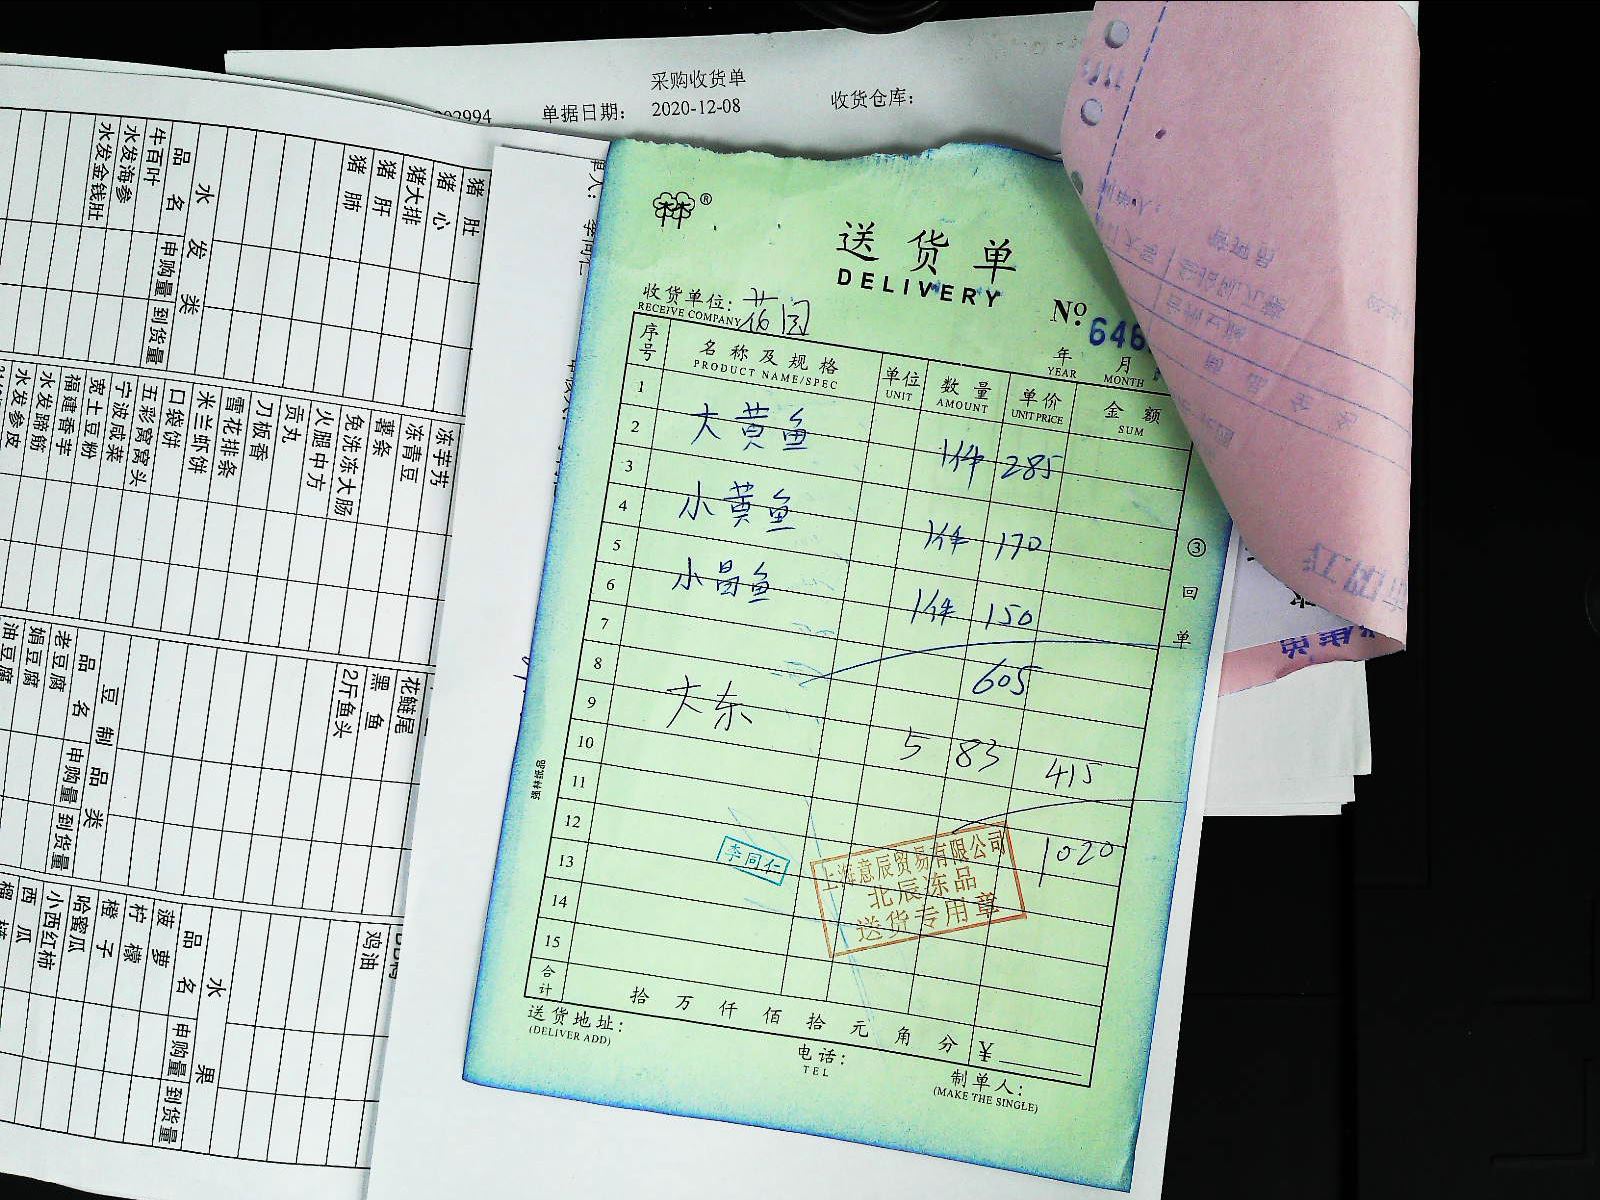 采购收货单
单据日期： 2020-12-08 收货仓库：
林林®
送货单
DELIVERY
收货单位：
RECEIVE COMPANY
№ 646
年 月
YEAR MONTH
序号 名称及规格 单位 数量 单价 金额
PRODUCT NAME/SPEC UNIT AMOUNT UNIT PRICE SUM
1
2 大黄鱼 1件 285
3
4 小黄鱼 1件 170
5
6 小昌鱼 1件 150
7
8 605
9 大东 5 83 415
10
11
12 1020
13
14
15
李同仁
上海意辰贸易有限公司
北辰冻品
送货专用章
合计 拾 万 仟 佰 拾 元 角 分 ¥
送货地址：
(DELIVER ADD)
电话：
TEL
制单人：
(MAKE THE SINGLE)
③ 回单
强林纸品
水发类
品名 申购量 到货量
牛百叶
水发海参
水发金钱肚
猪肚
猪心
猪大排
猪肝
猪肺
冻芋艿
冻青豆
薯条
免洗冻大肠
火腿中方
贡丸
刀板香
雪花排条
米兰虾饼
口袋饼
五彩窝窝头
宁波咸菜
宽土豆粉
福建香芋
水发蹄筋
水发参皮
花鲢尾
黑鱼
2斤鱼头
豆制品类
品名 申购量 到货量
老豆腐
娟豆腐
油豆腐
鸡油
水果
品名 申购量 到货量
菠萝
柠檬
橙子
哈蜜瓜
小西红柿
西瓜
榴莲